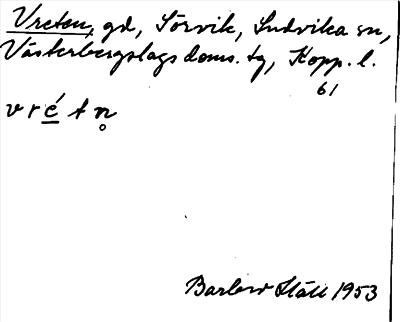 Vreten, gd, Sörvik, Ludvika sn,
Västerbergslags doms. tg, Kopp. l.
61
v r é t n̥
Barbro Ståll 1953